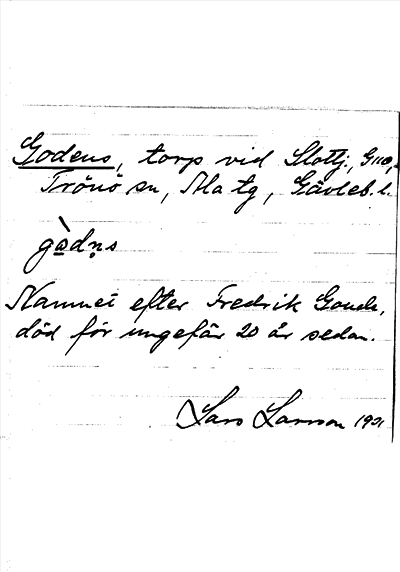 Godens, torp vid Slottj, G110,
Trönö sn, Ala tg, Gävleb. l.
gòdn̥s
Namnet efter Fredrik Gode,
död för ungefär 20 år sedan.
Lars Larsson 1901